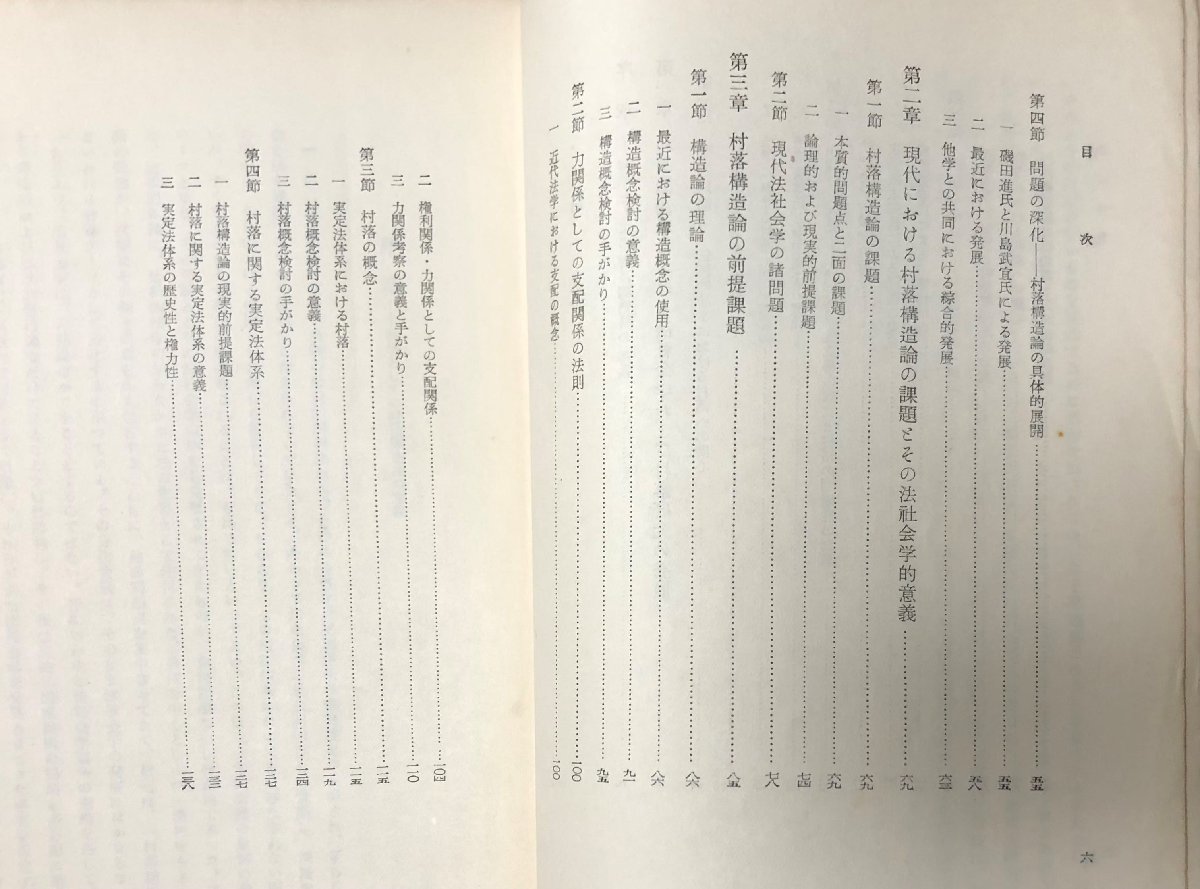 目次
第四節 問題の深化――村落構造論の具体的展開……五五
一 磯田進氏と川島武宜氏による発展……五五
二 最近における発展……五八
三 他学との共同における綜合的発展……六三
第二章 現代における村落構造論の課題とその法社会学的意義……六九
第一節 村落構造論の課題……六九
一 本質的問題点と二面の課題……六九
二 論理的および現実的前提課題……七四
第二節 現代法社会学の諸問題……七八
第三章 村落構造論の前提課題……八五
第一節 構造論の理論……八六
一 最近における構造概念の使用……八六
二 構造概念検討の意義……九一
三 構造概念検討の手がかり……九五
第二節 力関係としての支配関係の法則……一〇〇
一 近代法学における支配の概念……一〇〇
六
二 権利関係・力関係としての支配関係……一〇四
三 力関係考察の意義と手がかり……一一〇
第三節 村落の概念……一一五
一 実定法体系における村落……一一五
二 村落概念検討の意義……一一九
三 村落概念検討の手がかり……一二四
第四節 村落に関する実定法体系……一二七
一 村落構造論の現実的前提課題……一二七
二 村落に関する実定法体系の意義……
三 実定法体系の歴史性と権力性……一三八